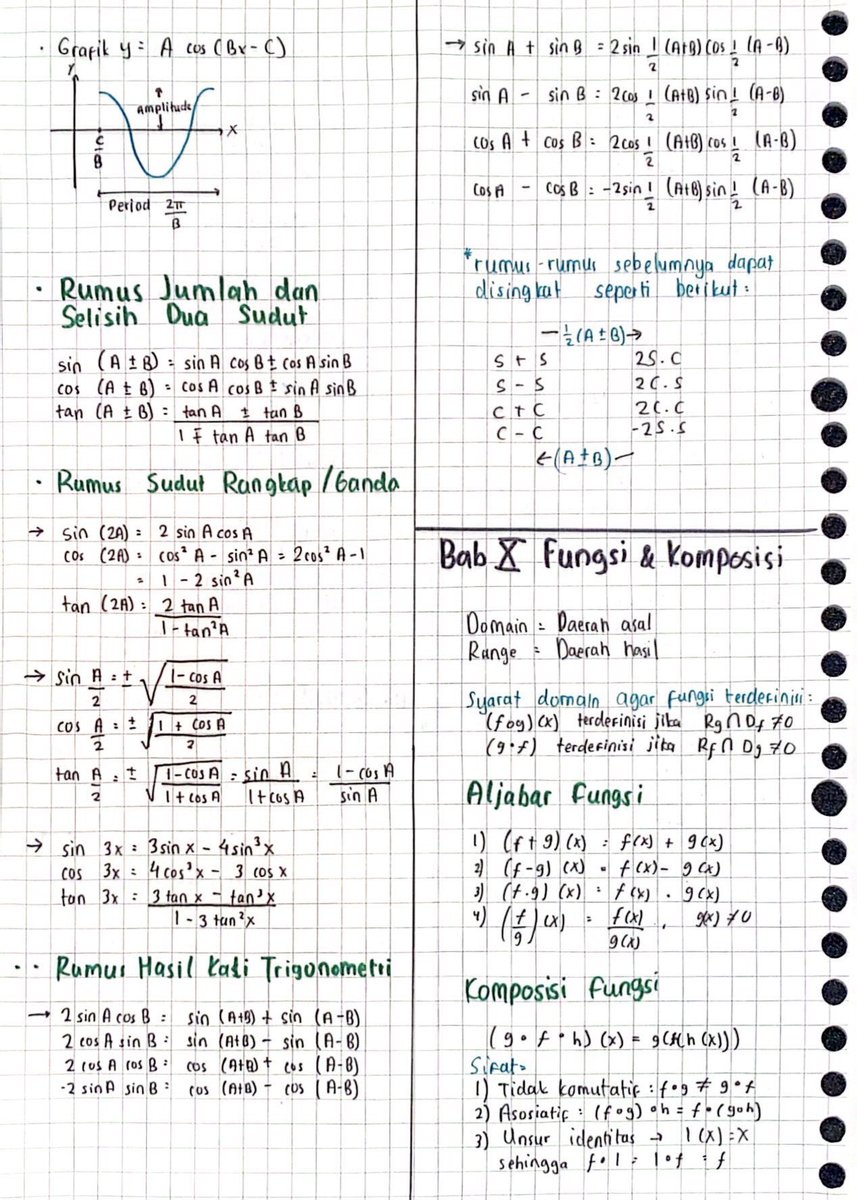 · Grafik y = A cos (Bx - C)
Y
Amplitudo
X
C/B
Period 2π/B
· Rumus Jumlah dan
Selisih Dua Sudut
sin (A ± B) = sin A cos B ± cos A sin B
cos (A ± B) = cos A cos B ± sin A sin B
tan (A ± B) = (tan A ± tan B)/(1 ∓ tan A tan B)
· Rumus Sudut Rangkap / Ganda
→ sin (2A) = 2 sin A cos A
cos (2A) = cos² A - sin² A = 2cos² A - 1
= 1 - 2 sin² A
tan (2A) = (2 tan A)/(1 - tan² A)
→ sin A/2 = ± √((1 - cos A)/2)
cos A/2 = ± √((1 + cos A)/2)
tan A/2 = ± √((1 - cos A)/(1 + cos A)) = sin A/(1 + cos A) = (1 - cos A)/sin A
→ sin 3x = 3 sin x - 4 sin³ x
cos 3x = 4 cos³ x - 3 cos x
tan 3x = (3 tan x - tan³ x)/(1 - 3 tan² x)
·· Rumus Hasil Kali Trigonometri
→ 2 sin A cos B = sin (A+B) + sin (A-B)
2 cos A sin B = sin (A+B) - sin (A-B)
2 cos A cos B = cos (A+B) + cos (A-B)
-2 sin A sin B = cos (A+B) - cos (A-B)
→ sin A + sin B = 2 sin 1/2 (A+B) cos 1/2 (A-B)
sin A - sin B = 2 cos 1/2 (A+B) sin 1/2 (A-B)
cos A + cos B = 2 cos 1/2 (A+B) cos 1/2 (A-B)
cos A - cos B = -2 sin 1/2 (A+B) sin 1/2 (A-B)
*rumus-rumus sebelumnya dapat
disingkat seperti berikut:
— 1/2 (A ± B) →
S + S 2S.C
S - S 2C.S
C + C 2C.C
C - C -2S.S
← (A ± B) —
Bab X Fungsi & Komposisi
Domain = Daerah asal
Range = Daerah hasil
Syarat domain agar fungsi terdefinisi:
(f o g) (x) terdefinisi jika Rg ∩ Df ≠ 0
(g ∘ f) terdefinisi jika Rf ∩ Dg ≠ 0
Aljabar Fungsi
1) (f + g) (x) = f(x) + g(x)
2) (f - g) (x) = f(x) - g(x)
3) (f . g) (x) = f(x) . g(x)
4) (f/g) (x) = f(x)/g(x), g(x) ≠ 0
Komposisi Fungsi
(g ∘ f ∘ h) (x) = g(f(h(x)))
Sifat:
1) Tidak komutatif : f∘g ≠ g∘f
2) Asosiatif : (f∘g)∘h = f∘(g∘h)
3) Unsur identitas → I(x) = x
sehingga f∘I = I∘f = f